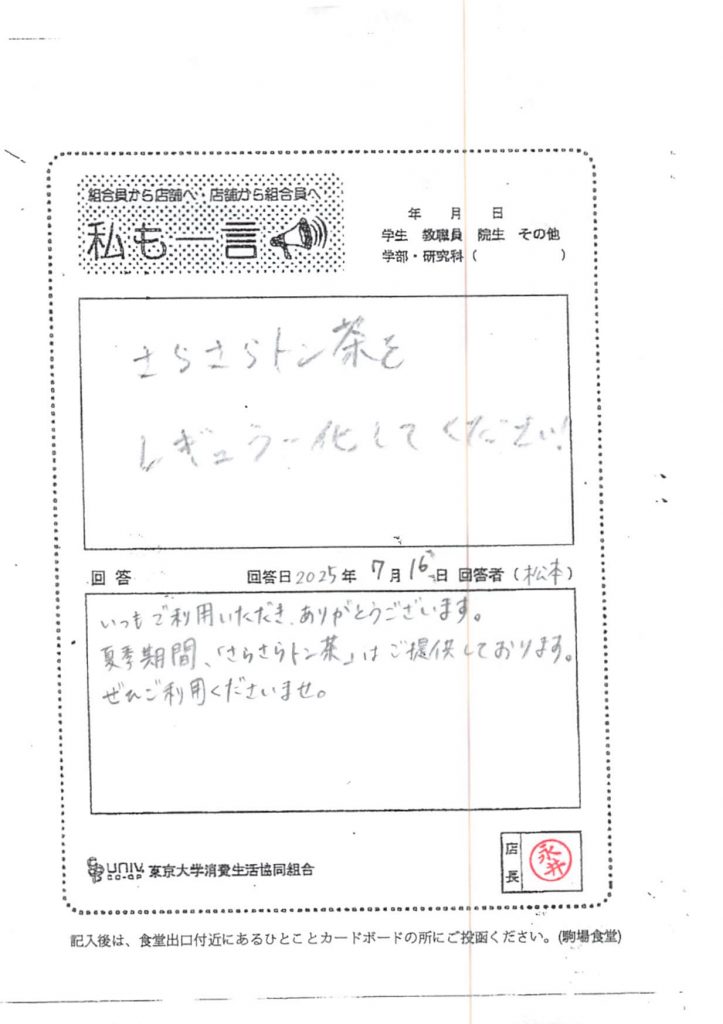 組合員から店舗へ・店舗から組合員へ
私も一言
年 月 日
学生 教職員 院生 その他
学部・研究科 ( )
さらさらトン茶を
レギュラー化してください!
回答 回答日2025年 7月16日 回答者(松本)
いつもご利用いただき、ありがとうございます。
夏季期間、「さらさらトン茶」はご提供しております。
ぜひご利用くださいませ。
UNIV. CO-OP 東京大学消費生活協同組合
店長 永井
記入後は、食堂出口付近にあるひとことカードボードの所にご投函ください。(駒場食堂)